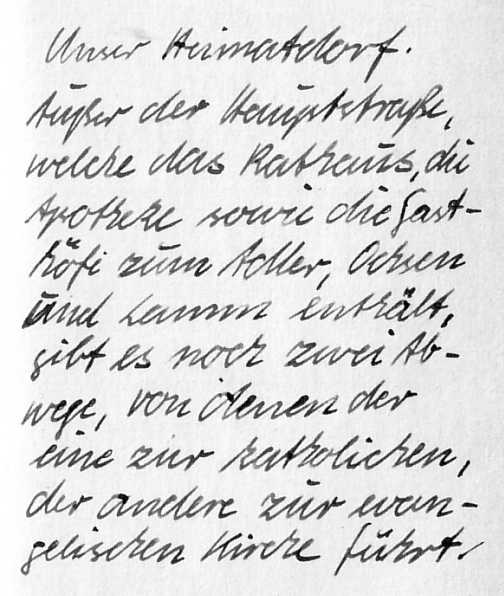 Unser Heimatdorf.
Außer der Hauptstraße,
welche das Rathaus, die
Apotheke sowie die Gast-
höfe zum Adler, Ochsen
und Lamm enthält,
gibt es noch zwei Ab-
wege, von denen der
eine zur katholichen,
der andere zur evan-
gelischen Kirche führt.